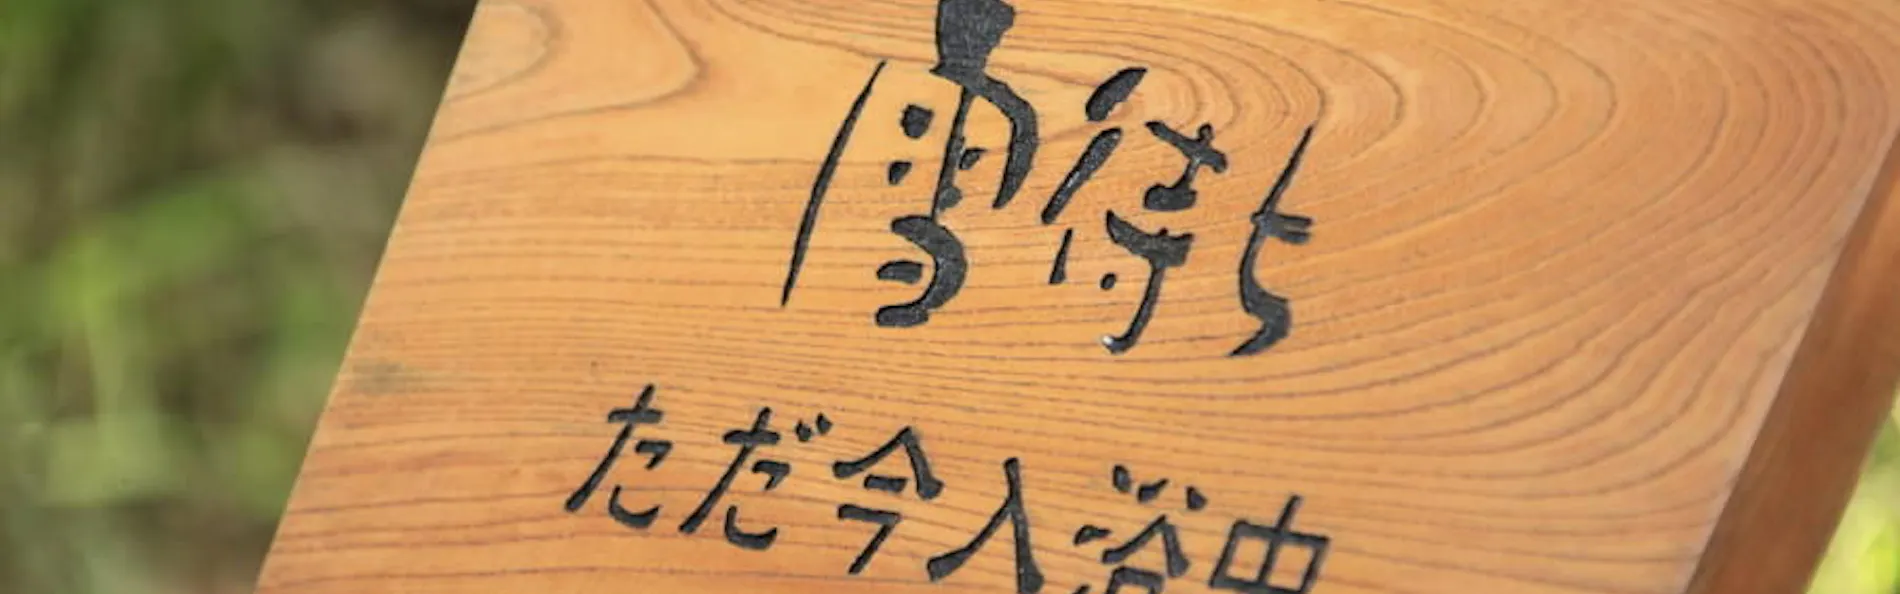 雪待ち
ただ今入浴中